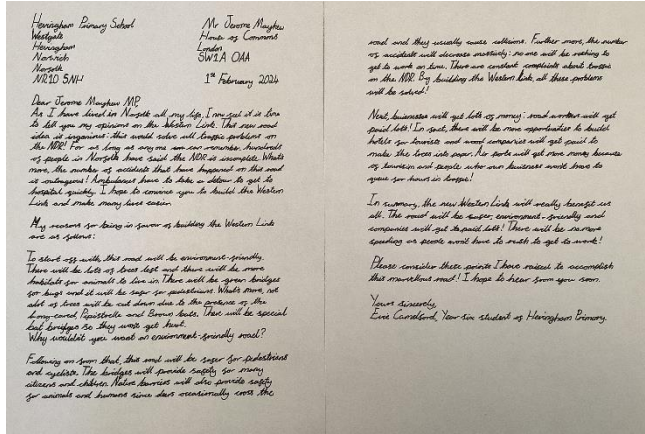 Hevingham Primary School
Westgate
Hevingham
Norwich
Norfolk
NR10 5NH
Mr Jerome Mayhew
House of Commons
London
SW1A OAA
1st February 2024
Dear Jerome Mayhew MP,
As I have lived in Norfolk all my life, I now feel it is time
to tell you my opinions on the Western Link. This new road
idea is ingenious: this would solve all traffic problems on
the NDR! For as long as anyone can remember, hundreds
of people in Norfolk have said the NDR is incomplete. What's
more, the number of accidents that have happened on this road
is outrageous! Ambulances have to take a detour to get to
hospital quickly. I hope to convince you to build the Western
Link and make many lives easier.
My reasons for being in favor of building the Western Link
are as follows:
To start off with, this road will be environment-friendly.
There will be lots of trees left and there will be more
habitats for animals to live in. There will be green bridges
for bugs and it will be safer for pedestrians. What's more, not
alot of trees will be cut down due to the presence of the
Long-eared, Pipistrelle and Brown bats. There will be special
bat bridges so they wont get hurt.
Why wouldn't you want an environment-friendly road?
Following on from that, this road will be safer for pedestrians
and cyclists. The bridges will provide safety for many
citizens and children. Native barriers will also provide safety
for animals and humans since deers occasionally cross the
road and they usually cause collisions. Further more, the number
of accidents will decrease massively: no one will be rushing to
get to work on time. There are constant complaints about traffic
on the NDR. By building the Western Link, all these problems
will be solved!
Next, businesses will get lots of money: road workers will get
paid lots! In fact, there will be more opportunities to build
hotels for tourists and wood companies will get paid to
make the trees into paper. Air ports will get more money because
of tourism and people who own business wont have to
queue for hours in traffic!
In summary, the new Western Link will really benefit us
all. The road will be safer, environment-friendly and
companies will get to paid lots! There will be no more
speeding as people won't have to rush to get to work!
Please consider these points I have raised to accomplish
this marvellous road! I hope to hear from you soon.
Yours sincerely,
Evie Year six student at Hevingham Primary.